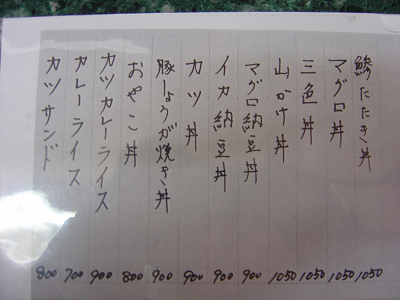 鯵たたき丼 1050
マグロ丼 1050
三色丼 1050
山かけ丼 1050
マグロ納豆丼 900
イカ納豆丼 900
カツ丼 900
豚しょうが焼き丼 900
おやこ丼 800
カツカレーライス 900
カレーライス 700
カツサンド 800